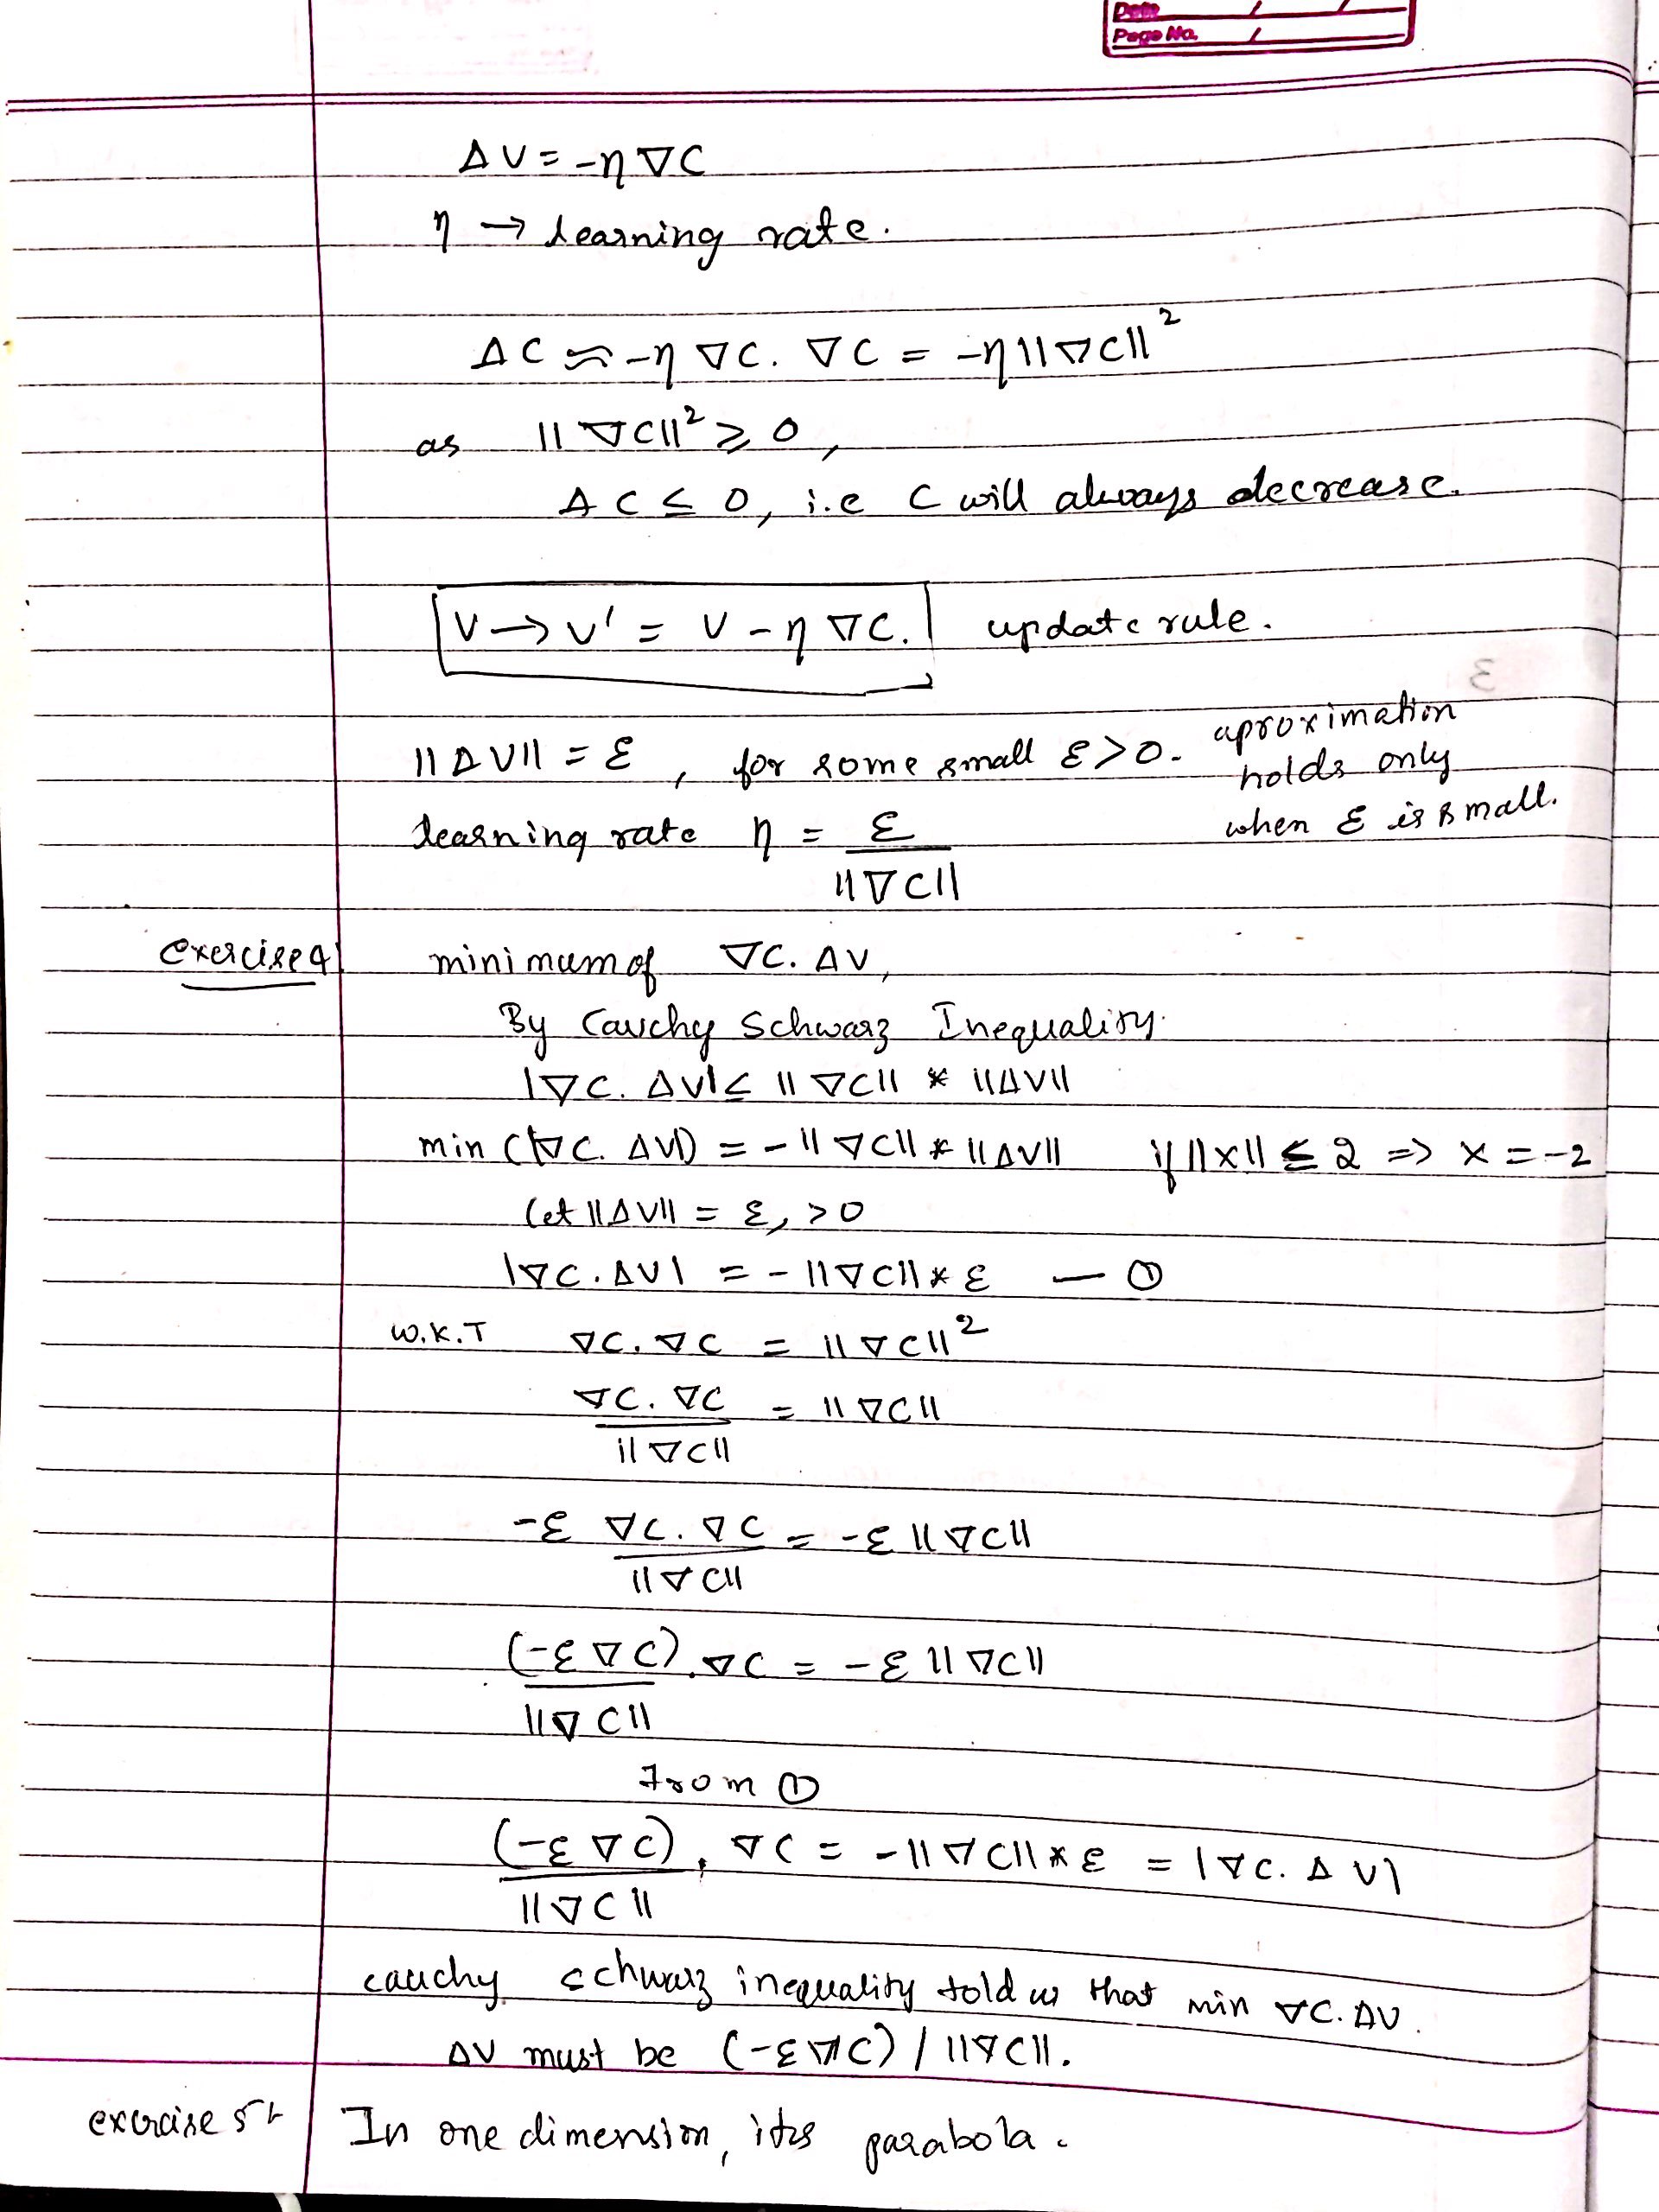 Date / /
Page No. /
Δv = -η ∇C
η → learning rate.
ΔC ≈ -η ∇C. ∇C = -η ||∇C||²
as ||∇C||² ≥ 0,
ΔC ≤ 0, i.e C will always decrease.
v → v' = v - η ∇C. update rule.
||Δv|| = ε, for some small ε>0. aproximation
holds only
when ε is small.
learning rate η = ε / ||∇C||
exercise 4 minimum of ∇C. Δv,
By Cauchy Schwarz Inequality.
|∇C. Δv| ≤ ||∇C|| * ||Δv||
min (|∇C. Δv|) = - ||∇C|| * ||Δv|| if ||x|| ≤ 2 => x = -2
let ||Δv|| = ε, >0
|∇C. Δv| = - ||∇C|| * ε — ①
W.K.T ∇C. ∇C = ||∇C||²
∇C. ∇C / ||∇C|| = ||∇C||
-ε ∇C. ∇C / ||∇C|| = -ε ||∇C||
(-ε ∇C) / ||∇C|| . ∇C = -ε ||∇C||
From ①
(-ε ∇C) / ||∇C|| . ∇C = -||∇C|| * ε = |∇C. Δv|
cauchy schwarz inequality told us that min ∇C. Δv.
Δv must be (-ε ∇C) / ||∇C||.
exercise 5 In one dimension, its parabola.